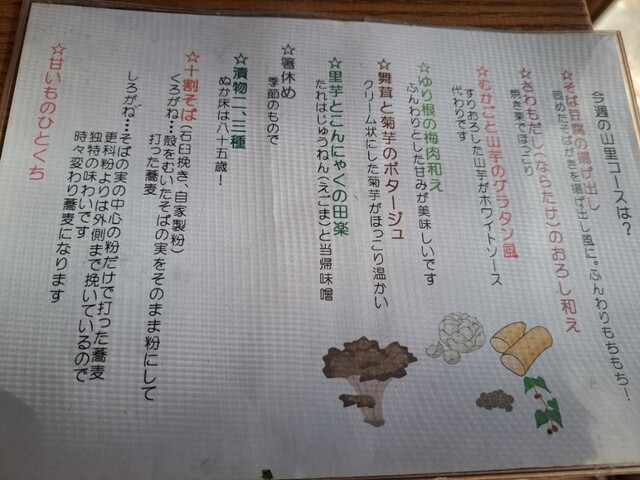 今週の山里コースは？
☆そば豆腐の揚げ出し
固めたそばがきを揚げ出し風に。ふんわりもちもち！
☆さわもだし（ならたけ）のおろし和え
焼き栗でほっこり
☆むかごと山芋のグラタン風
すりおろした山芋がホワイトソース
代わりです
☆ゆり根の梅肉和え
ふんわりとした甘みが美味しいです
☆舞茸と菊芋のポタージュ
クリーム状にした菊芋がほっこり温かい
☆里芋とこんにゃくの田楽
たれはじゅうねん（えごま）と当帰味噌
☆箸休め
季節のもので
☆漬物二、三種
ぬか床は八十五歳！
☆十割そば（石臼挽き、自家製粉）
くろがね…殻をむいたそばの実をそのまま粉にして
打った蕎麦
しろがね…そばの実の中心の粉だけで打った蕎麦
更科粉よりは外側まで挽いているので
独特の味わいです
時々変わり蕎麦になります
☆甘いものひとくち